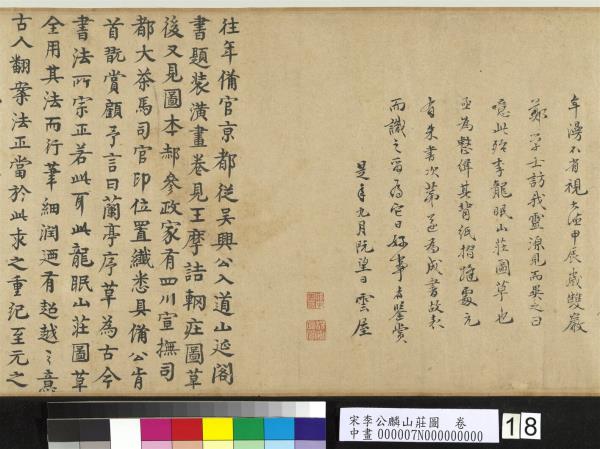 年漫不省視大德甲辰歲雙巖
鄭學士訪我靈源見而異之曰
噫此殆李龍眠山莊圖草也
亟為整併其背紙摺縫處元
有朱書次第遂為成書故表
而識之留為它日好事者鑒賞
是年九月既望日雲屋
往年備官京都從吳興公入道山延閣
書題裝潢畫卷見王摩詰輞庄圖草
後又見圖本郝參政家有四川宣撫司
都大茶馬司官印位置纖悉具備公肯
首翫賞顧予言曰蘭亭序草為古今
書法所宗正若此耳此龍眠山莊圖草
全用其法而行筆細潤迺有超越之意
古人翻案法正當於此求之重紀至元之
宋李公麟山莊圖 卷
中畫000007N000000000
18